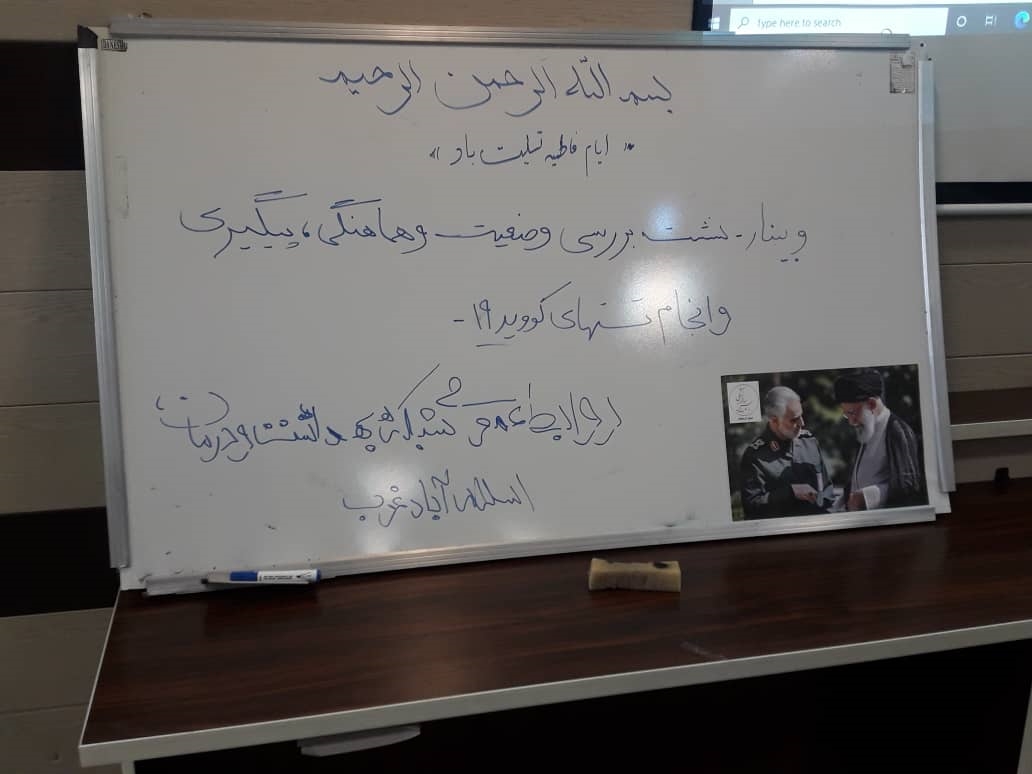 Type here to search
بسم الله الرحمن الرحیم
«ایام فاطمیه تسلیت باد»
وبینار - نشست بررسی وضعیت وهماهنگی، پیگیری
وانجام تستهای کووید ۱۹ -
روابط عمومی شبکه بهداشت ودرمان
اسلام آبادغرب